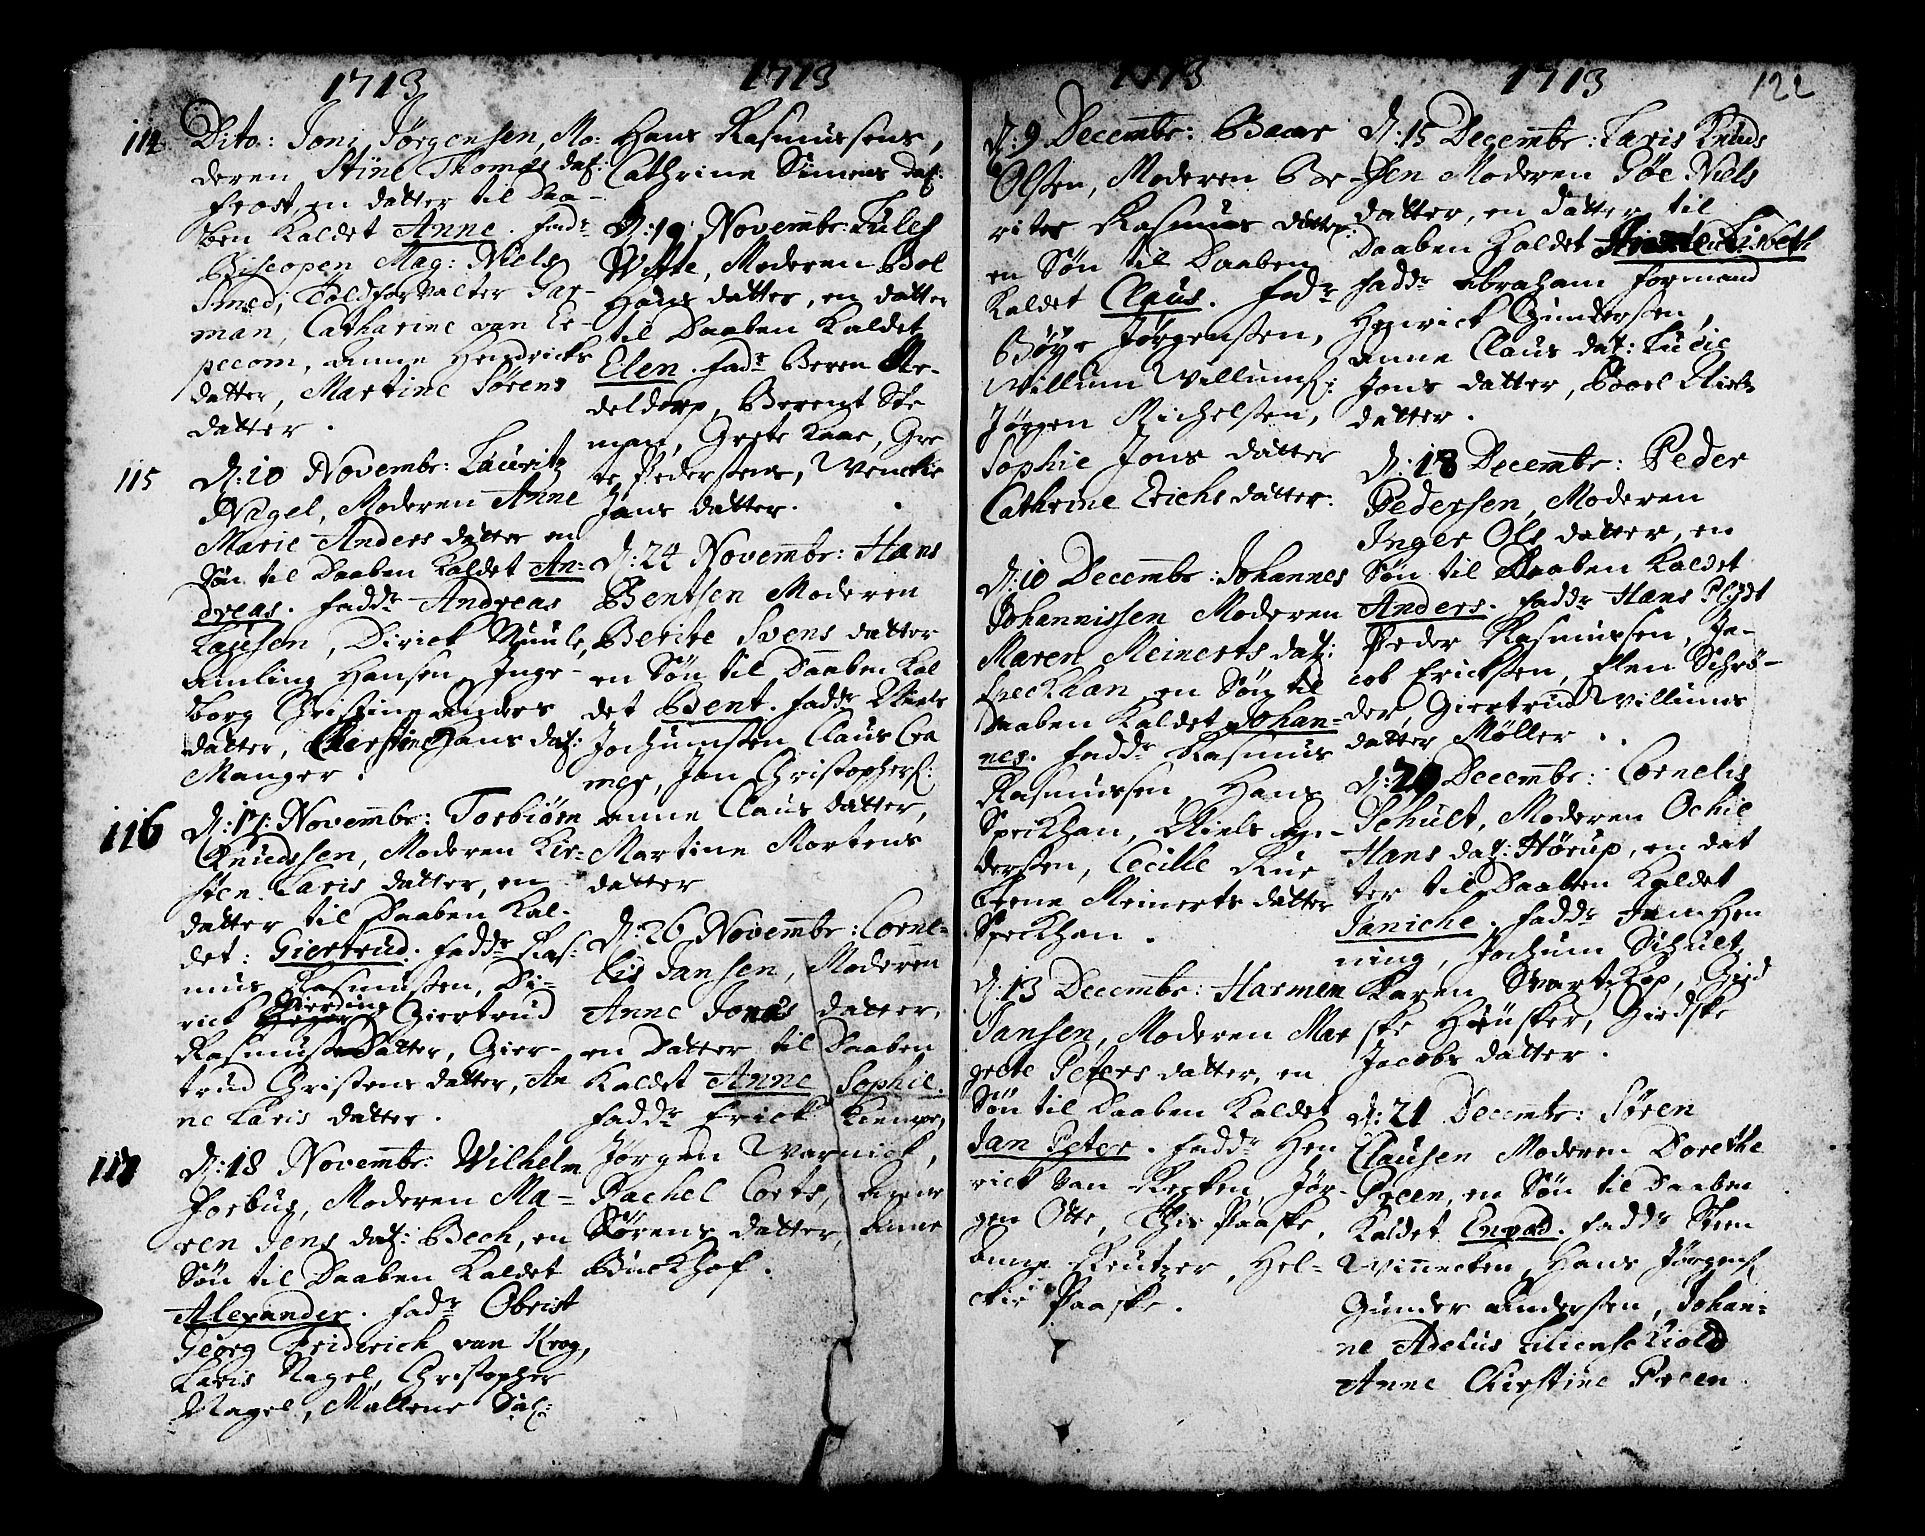 1713
114 Dito: Joni Jørgensen, Mo:
deren Stine Thomas dat:
frost en datter til Daa-
ben Kaldet Anne. Fadr
Biscopen Mag: Niels
Smed, Toldforvalter Gar-
man, Catharine van Er-
pecom, Anne Hendricks
datter, Martine Sørens
datter.
115 D: 10 Novembr: Lauritz
Nagel, Moderen Anne
Marie Anders datter en
Søn til Daaben Kaldet An=
dreas. Faddr Andreas
Lausen, Dirick Muule,
Amling Hansen, Inge-
borg Christine Anders
datter, Cherstine Hans dat:
Manger.
116 D: 17: Novembr: Torbiørn
Knudssen, Moderen Kir-
sten Laris datter, en
datter til Daaben Kal-
det: Giertrud. Faddr Ras-
mus Rasmussen, Di-
rick Gierding Giertrud
Rasmusdatter, Gier-
trud Christens datter, An
ne Laris datter.
117 D: 18 Novembr: Wilhelm
Forbus, Moderen Ma=
ren Jens dat: Bech, en
Søn til Daaben Kaldet
Alexander. Fadr Obrist
Georg Fridrich van Krog,
Laris Nagel, Christopher
Nagel, Mallene Sal:
1713
Hans Rasmussens,
Cathrine Simens dat:
D: 19 Novembr: Tules
Witte, Moderen Bol
Hans datter, en datter
til Daaben Kaldet
Elen. Fadr Beren Me-
deldorp, Berent Ste
man, Grete Kaae, Gre
te Pedersens, Wenckie
Jans datter.
D: 24 Novembr: Hans
Bentsen Moderen
Berite Svens datter
en Søn til Daaben Kal
det Bent. Faddr Niels
Jochumssen Claus Cra
mer, Jan Christophers:
Anne Claus datter,
Martine Mortens
datter
D: 26 Novembr: Corne-
lis Jansen, Moderen
Anne Jonas datter,
en Datter til Daaben
Kaldet Anne Sophie.
Faddr Erick Kiempe,
Jørgen Warnick,
Rachel Coets, Agnne
Sørens datter, Anne
Buckhof.
1713
D: 9 Decembr: Baar
Olsen, Moderen Be-
rites Rasmus datter
en Søn til Daaben
Kaldet Claus. Fadr
Böye Jörgensen,
Willum Willums:
Jörgen Michelsen,
Sophie Jons datter
Cathrine Erichs datter.
D: 10 Decembr: Johannes
Johannissen Moderen
Maren Meinerts dat:
Speckhan en Søn til
Daaben Kaldet Johan=
nes. Faddr Rasmus
Rasmussen, Hans
Speckhan, Niels An-
dersen, Cecille Rue
Trene Meinerts datter
Speckhan.
D: 13 Decembr: Harmen
Jansen, Moderen Mar
grete Peters datter, en
Søn til Daaben Kaldet
Jan Peter. Faddr Hen
rick van Recken, Jör-
gen Otte, This Paaske,
Anne Creutzer, Hel-
ckie Paaske.
1713 122
D: 15 Decembr: Laris Knuds
sen Moderen Göe Niels
datter, en datter til
Daaben Kaldet Lisbeth
Faddr Abraham Formand
Henrick Gundersen,
Anne Claus dat: Lucie
Jons datter, Boel Niels
datter.
D: 18 Decembr: Peder
Pedersen, Moderen
Inger Ols datter, en
Søn til Daaben Kaldet
Anders. Faddr Hans Flydt
Peder Rasmussen, Ja-
cob Ericksen, Elen Schrö-
der, Giertrud Willums
datter Møller.
D: 20 Decembr: Cornelis
Schult, Moderen Ochie
Hans dat: Hørup, en dat
ter til Daaben Kaldet
Janiche. Faddr Jan Hen
ning, Jochum Schult
Karen Svartzkop, Gied
ske Hönsker, Giedske
Jacobs datter.
D: 21 Decembr: Søren
Clausen Moderen Dorethe
Preen, en Søn til Daaben
Kaldet Envold. Faddr Steen
Winnecken, Hans Jörgens:
Gunder Andersen, Johan=
ne Adelus Lilienschiold
Anne Chirstine Preen.